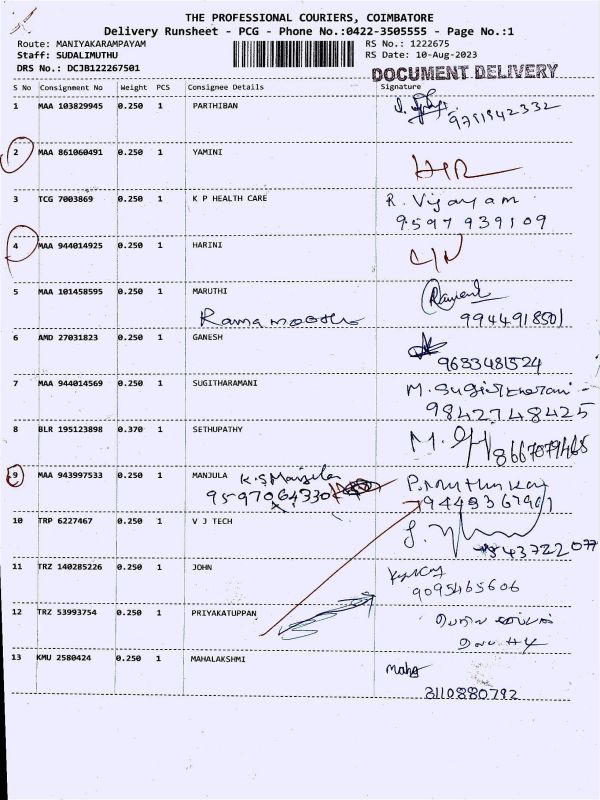 THE PROFESSIONAL COURIERS, COIMBATORE
Delivery Runsheet - PCG - Phone No.:0422-3505555 - Page No.:1
Route: MANIYAKARAMPAYAM RS No.: 1222675
Staff: SUDALIMUTHU RS Date: 10-Aug-2023
DRS No.: DCJB122267501 DOCUMENT DELIVERY
S No Consignment No Weight PCS Consignee Details Signature
1 MAA 103829945 0.250 1 PARTHIBAN
9751942332
2 MAA 861060491 0.250 1 YAMINI
3 TCG 7003869 0.250 1 K P HEALTH CARE R. Vijayam
9597939109
4 MAA 944014925 0.250 1 HARINI
5 MAA 101458595 0.250 1 MARUTHI
Ramamoorthi 9944918501
6 AMD 27031823 0.250 1 GANESH
9633481524
7 MAA 944014569 0.250 1 SUGITHARAMANI M. Sugitharani
9842748425
8 BLR 195123898 0.370 1 SETHUPATHY M.
8667079468
9 MAA 943997533 0.250 1 MANJULA K.S Manjula P. Muthu
9597064330
10 TRP 6227467 0.250 1 V J TECH
11 TRZ 140285226 0.250 1 JOHN
9095465606
12 TRZ 53993754 0.250 1 PRIYAKATUPPAN
13 KMU 2580424 0.250 1 MAHALAKSHMI Maha
3110880792